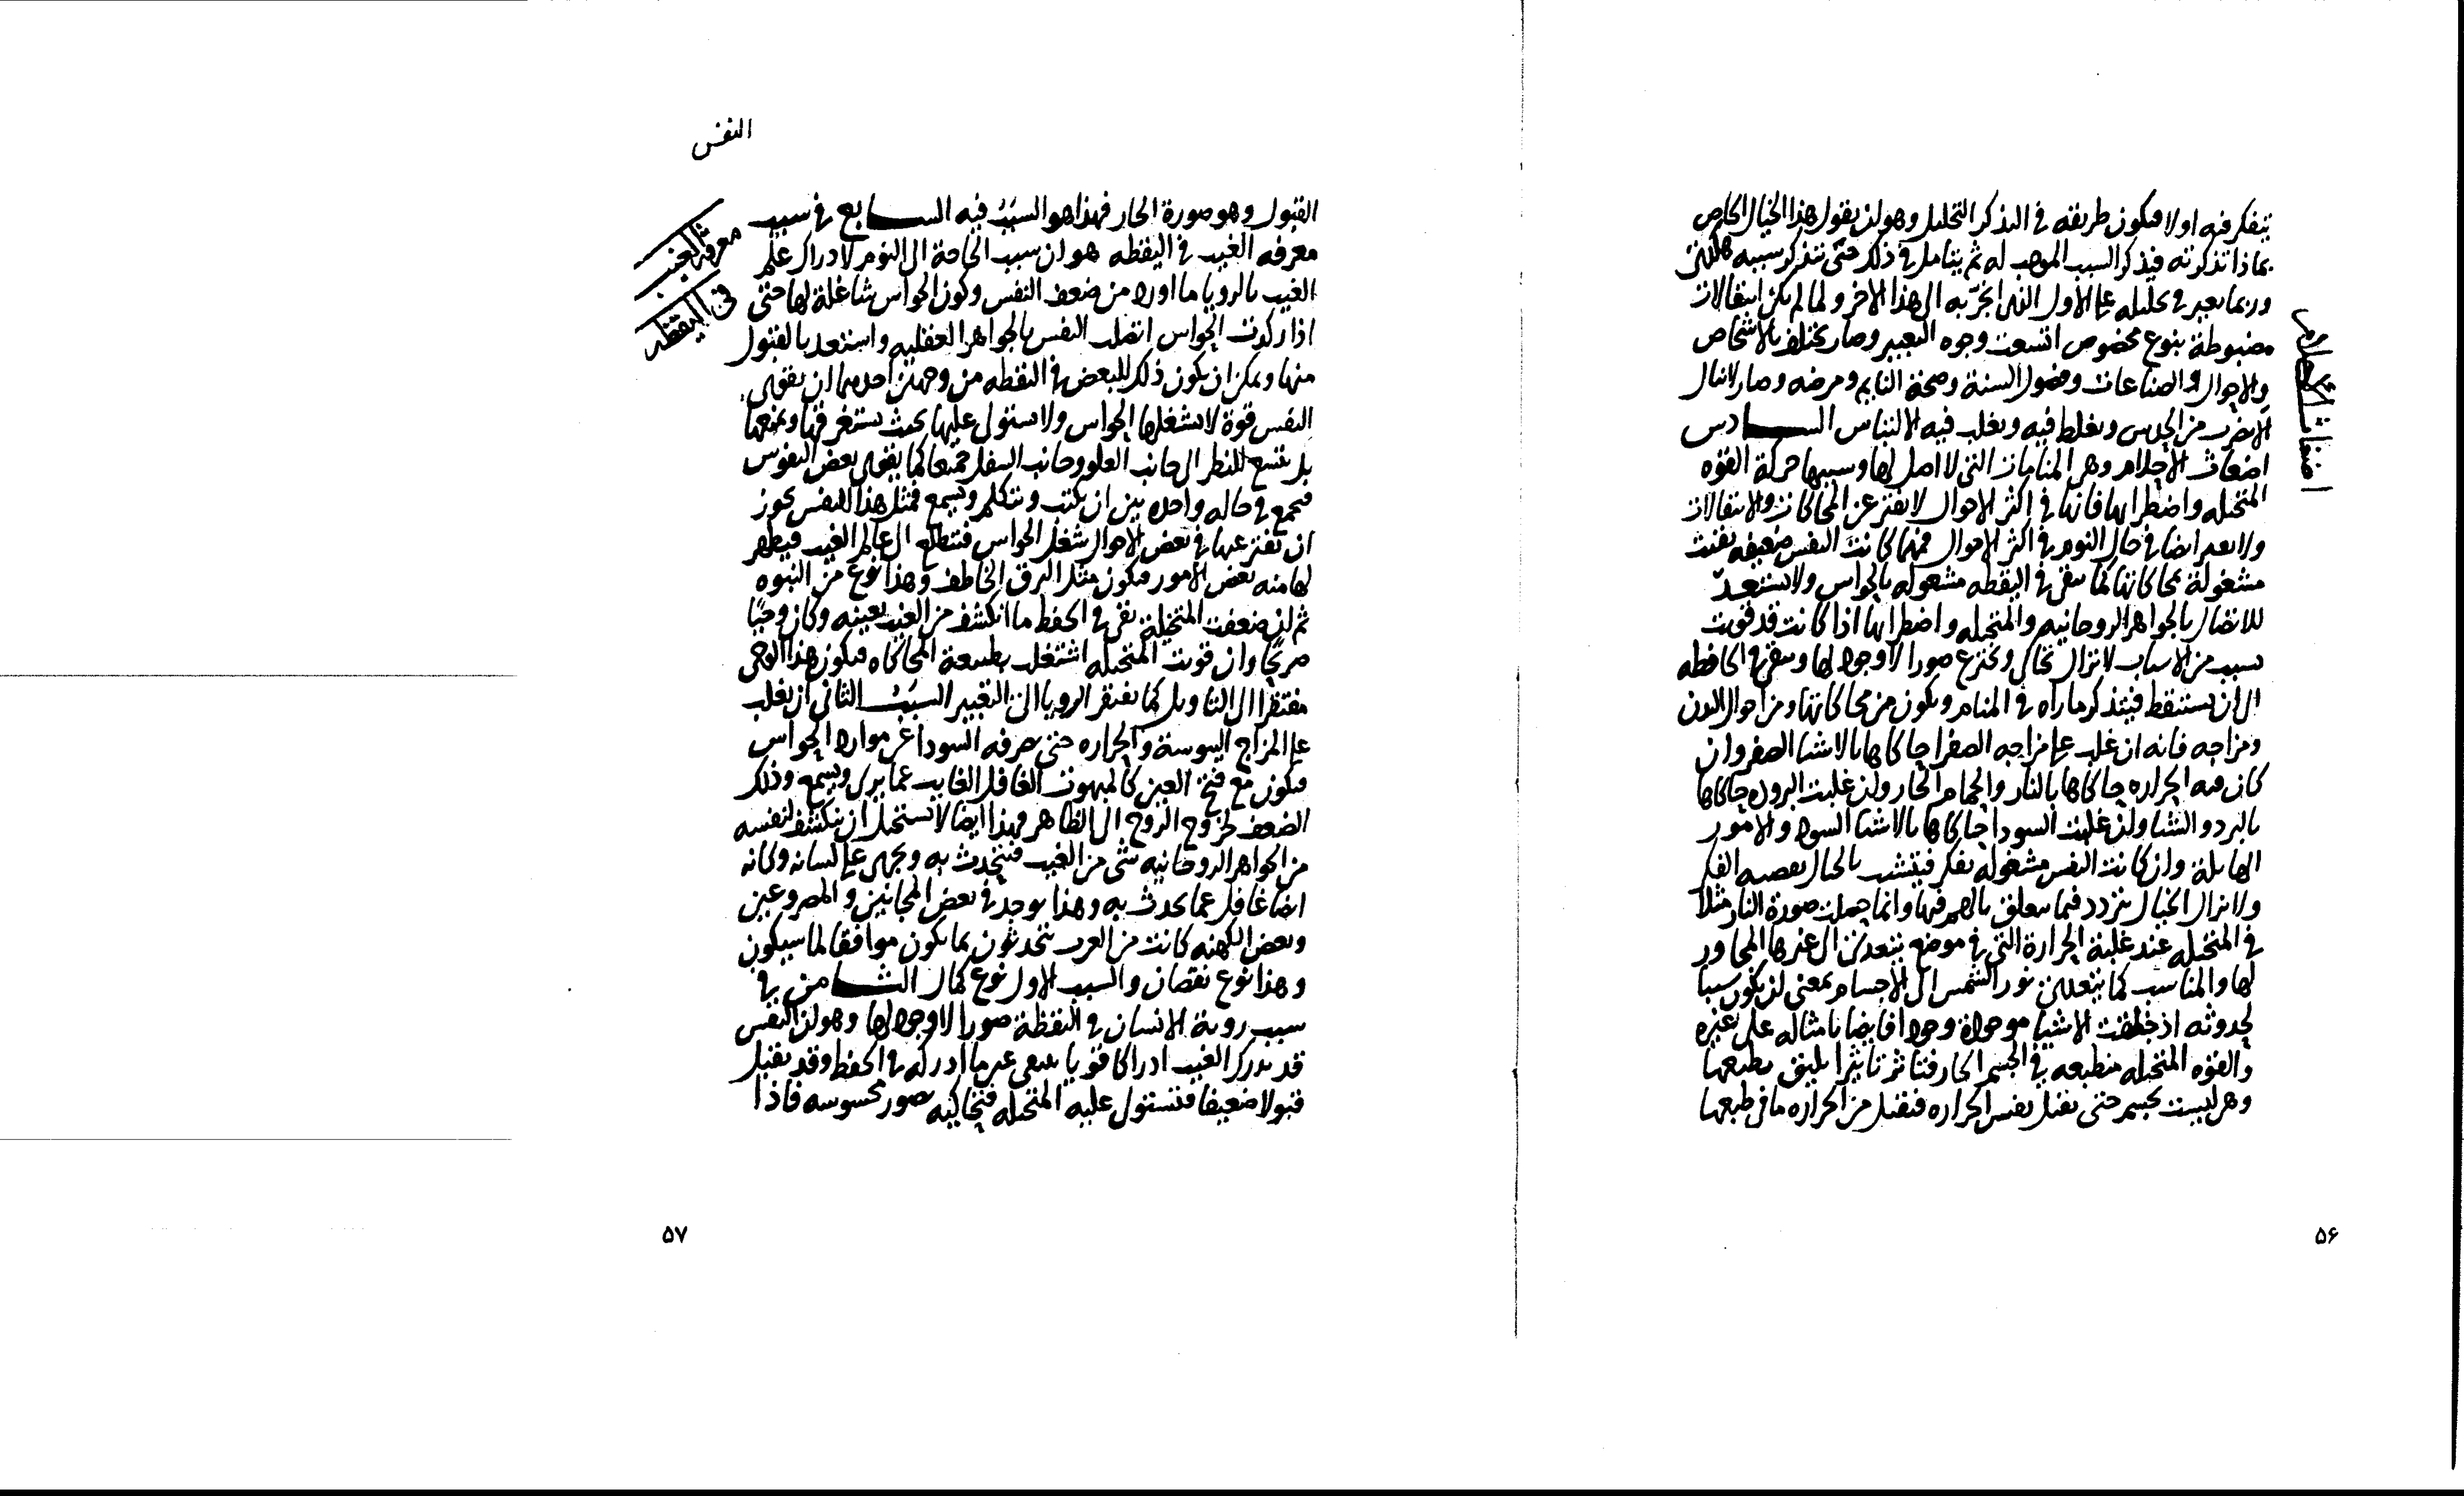 يتفكر فيه اولا فيكون طريقه في التذكر التحليل وهو ان يقول هذا الخيال الحاضر
بماذا تذكرته فيذكر السبب الموجب له ثم يتامل في ذلك حتى يتذكر سببه هكذى
وربما يعبر في تحليله على الاول الذى انجرّ به الى هذا الاخر ولما لم يكن انتقالات
مضبوطة بنوع مخصوص اتسعت وجوه التعبير وصار يختلف بالاشخاص
والاحوال والصناعات وفصول السنة وصحة النايم ومرضه وصار لا ينال
الا بضرب من الحدس ويغلط فيه ويغلب فيه الالتباس الســـادس
اضغاث الاحلام
اضغاث الاحلام وهى المنامات التى لا اصل لها وسببها حركة القوه
المتخيله واضطرابها فانها في اكثر الاحوال لا يفتر عن المحاكات والانتقالات
ولا يعبر ايضا في حال النوم في اكثر الاحوال فمهما كانت النفس ضعيفه بقيت
مشغولة بمحاكاتها كما يبقى في اليقظه مشغوله بالحواس ولا يستعدّ
للاتصال بالجواهر الروحانيه والمتخيله واضطرابها اذا كانت قد قويت
بسبب من الاسباب لا تزال تحاكى وتخترع صورا لا وجود لها ويبقى في الحافظه
الى ان يستيقظ فيتذكر ما راه في المنام ويكون من محاكاتها ومن احوال البدن
ومزاجه فانه ان غلب على مزاجه الصفرا حاكاها بالاشيا الصفر وان
كان فيه الحراره حاكاها بالنار والحمام الحار وان غلبت البروده حاكاها
بالبرد والشتا وان غلبت السودا حاكاها بالاشيا السود والامور
الهايلة وان كانت النفس مشغوله بفكر فيتشبث بالخيال بعصبه الفكر
ولا يزال الخيال يتردد فيما يتعلق بالهم فيها وانما حصلت صورة النار مثلا
في المتخيله عند غلبة الحرارة التى في موضع يتعدى الى غيرها المجاور
لها والمناسب كما يتعدى نور الشمس الى الاجسام بمعنى ان يكون سببا
لحدوثه اذ خلقت الاشيا موجودة وجودا فايضا بامثاله على غيره
والقوه المتخيله منطبعه في الجسم الحار فتتاثر تاثيرا يليق بطبعها
وهى ليست بجسم حتى يقبل نفس الحراره فيقبل من الحراره ما في طبعها
۵۶
النفس
القبول وهو صورة الحار فهذا هو السبب فيه الســـابع في سبب
معرفة الغيب
في اليقظه
معرفه الغيب في اليقظه هو ان سبب الحاجة الى النوم لادراك علم
الغيب بالرويا ما اورده من ضعف النفس وكون الحواس شاغلة لها حتى
اذا ركدت الحواس اتصلت النفس بالجواهر العقليه واستعد بالقبول
منها ويمكن ان يكون ذلك للبعض في اليقظه من وجهين احدهما ان يقوى
النفس قوة لا تشغلها الحواس ولا تستولى عليها بحيث تستغرقها ويمنعها
بل يتسع للنظر الى جانب العلو وجانب السفل جميعا كما يقوى بعض النفوس
فيجمع في حاله واحده بين ان يكتب ويتكلم ويسمع فمثل هذا النفس يجوز
ان تفتر عنها في بعض الاحوال شغل الحواس فتتطلع الى عالم الغيب فيظهر
لها منه بعض الامور فيكون مثل البرق الخاطف وهذا نوع من النبوه
ثم ان ضعفت المتخيلة بقى في الحفظ ما انكشف من الغيب بعينه وكان وحيًا
صريحًا وان قويت المتخيله اشتغلت بطبيعة المحاكاه فيكون هذا الوحى
مفتقرا الى التاويل كما يفتقر الرويا الى التعبير السبب الثانى ان يغلب
على المزاج اليبوسة والحراره حتى صرفه السودا عن موارد الحواس
فيكون مع فتح العين كالمبهوت الغافل الغايب عما يرى ويسمع وذلك
الضعف لخروج الروح الى الظاهر فهذا ايضا لا يستحيل ان ينكشف لنفسه
من الجواهر الروحانيه شى من الغيب فيتحدث به ويجرى على لسانه وكانه
ايضا غافل عما يحدث به وهذا يوجد في بعض المجانين والمصروعين
وبعض الكهنه كانت من العرب يتحدثون بما يكون موافقا لما سيكون
وهذا نوع نقصان والسبب الاول نوع كمال الثـــامن في
سبب روية الانسان في اليقظة صورا لا وجود لها وهو ان النفس
قد يدرك الغيب ادراكا قويا يبقى عين ما ادركه في الحفظ وقد يقبل
قبولا ضعيفا فتستولى عليه المتخيله فتحاكيه بصور محسوسه فاذا
۵۷